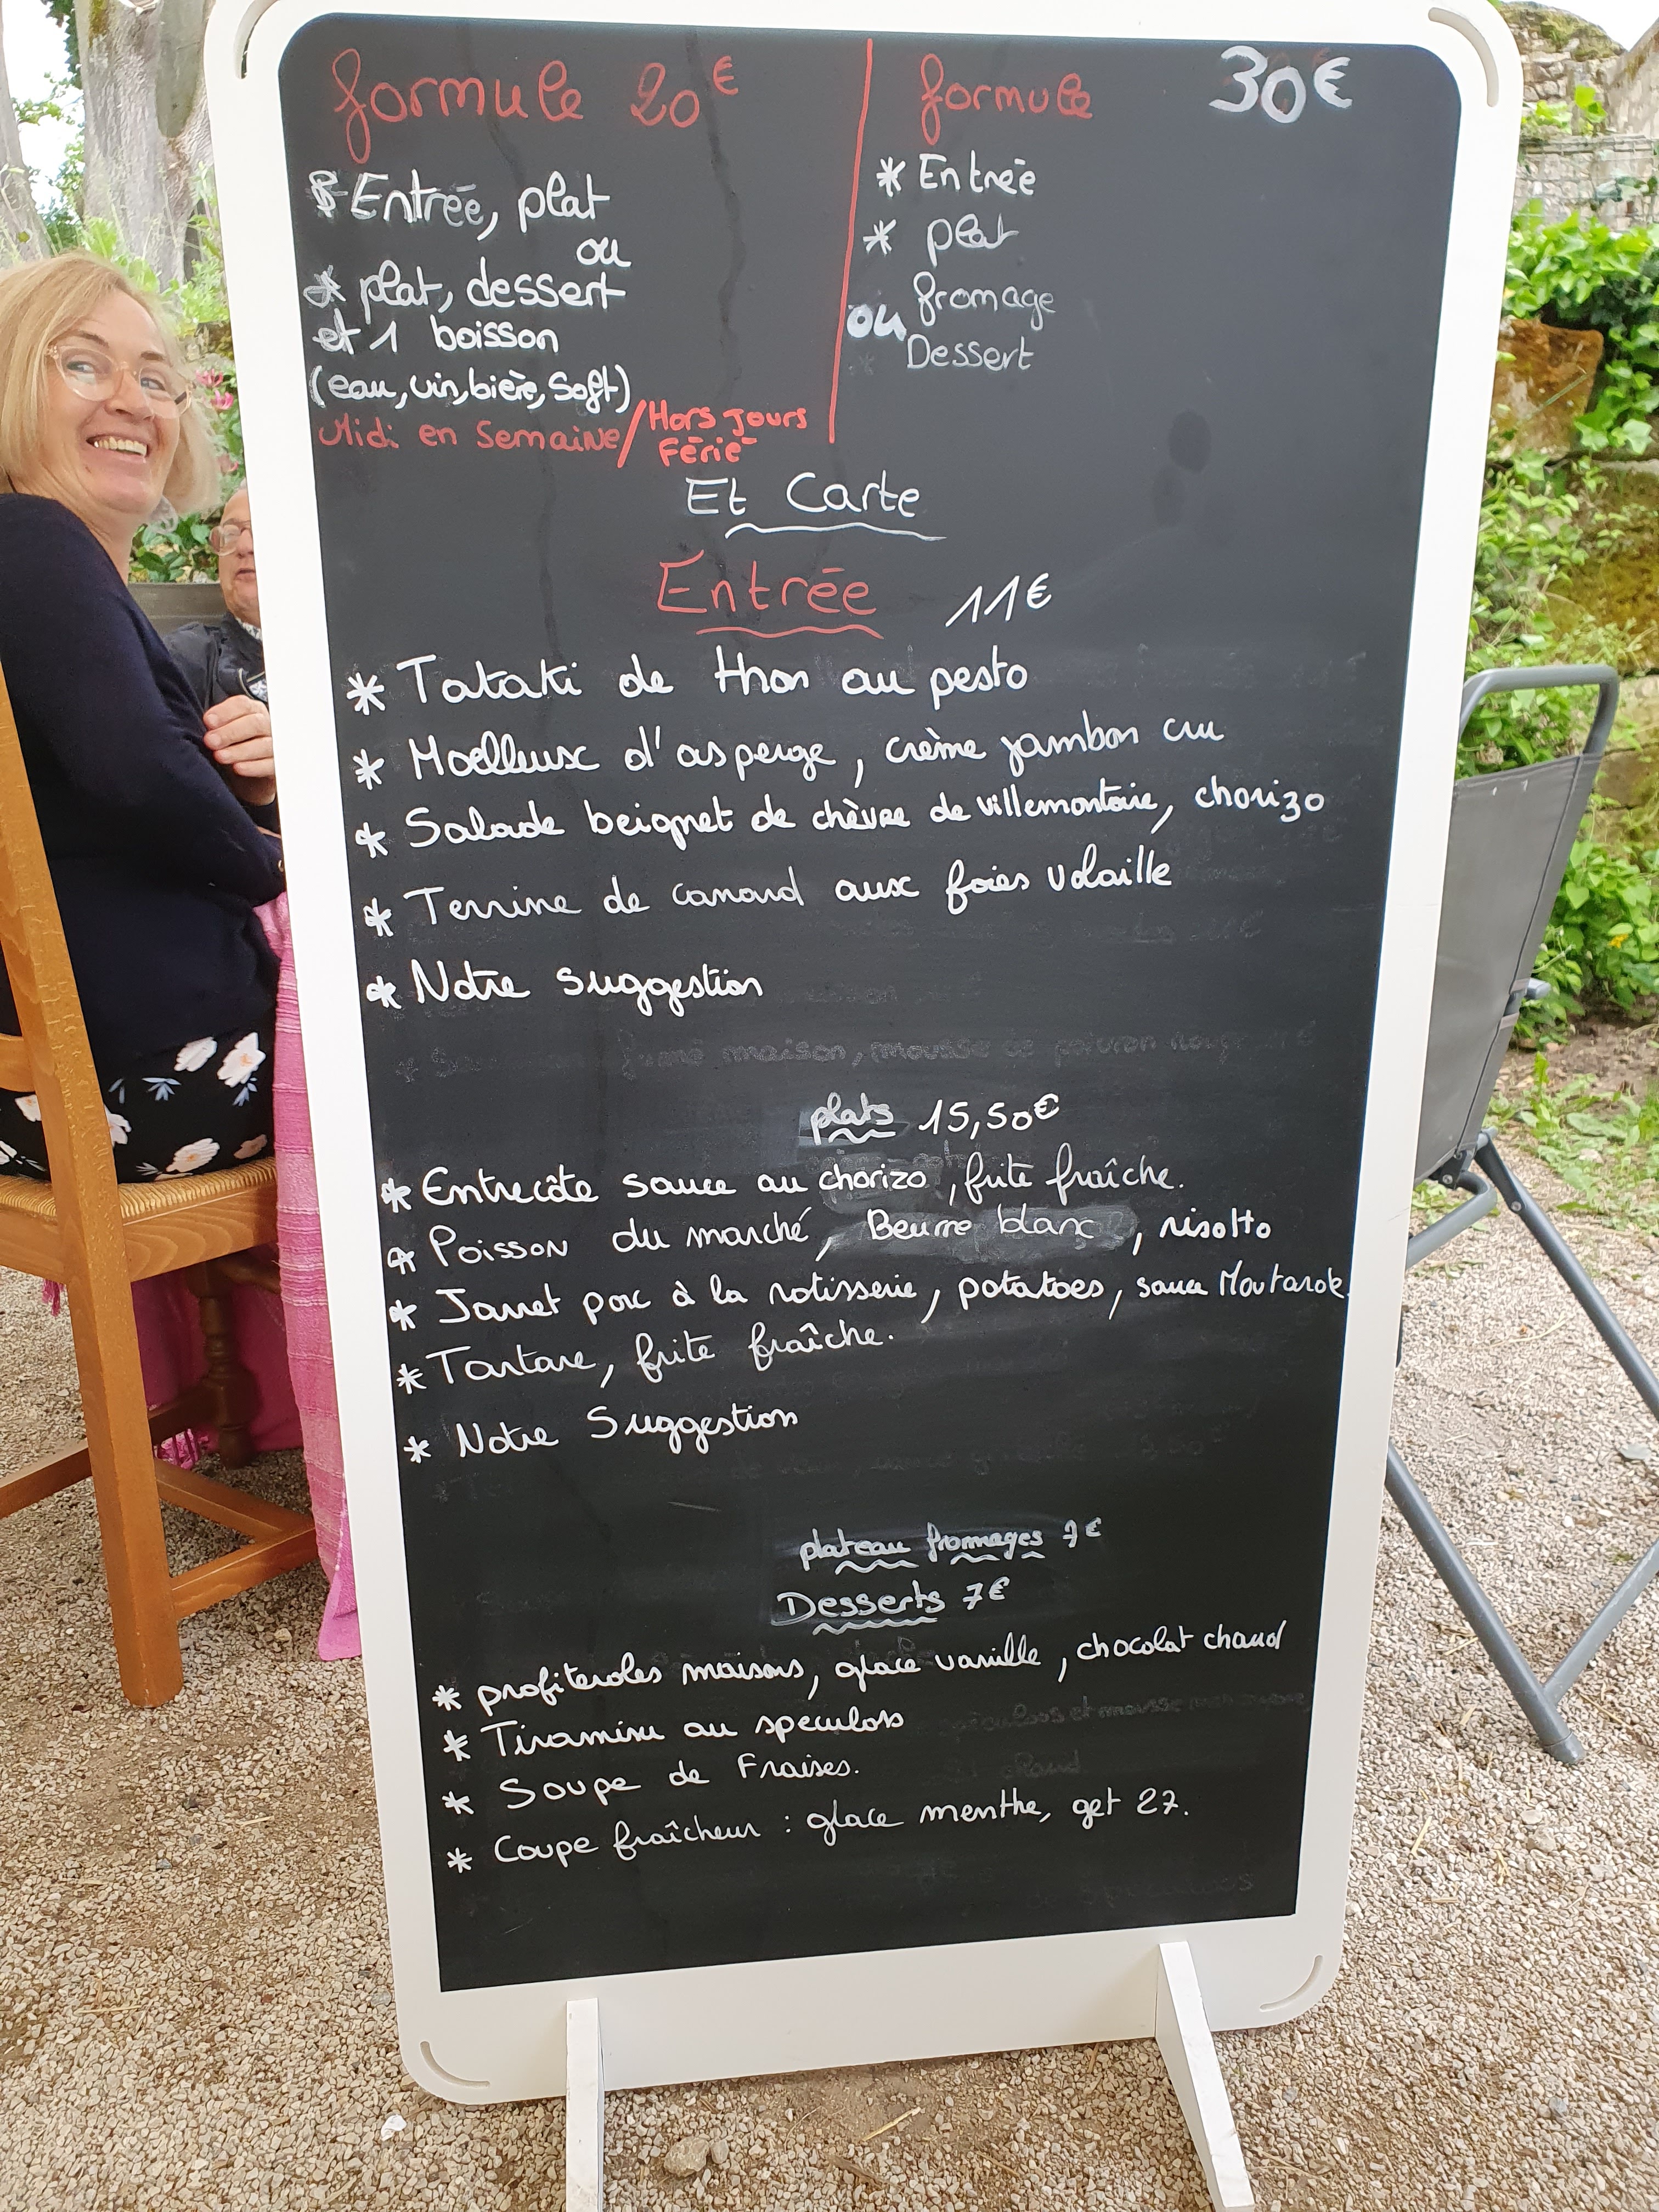 formule 20€
Entrée, plat
ou
* plat, dessert
et 1 boisson
(eau, vin, bière, Soft)
Midi en Semaine / Hors jours
Férié
formule 30€
* Entrée
* plat
fromage
ou
Dessert
Et Carte
Entrée 11€
* Tataki de thon au pesto
* Moelleux d'asperge, crème jambon cru
* Salade beignet de chèvre de villemontoire, chorizo
* Terrine de canard aux foies volaille
* Notre suggestion
plats 15,50€
* Entrecôte sauce au chorizo, frite fraîche.
* Poisson du marché, Beurre blanc, risotto
* Jarret porc à la rotisserie, potatoes, sauce Moutarde.
* Tartare, frite fraîche.
* Notre Suggestion
plateau fromages 7€
Desserts 7€
* profiteroles maisons, glace vanille, chocolat chaud
* Tiramisu au speculos
* Soupe de Fraises.
* Coupe fraîcheur : glace menthe, get 27.